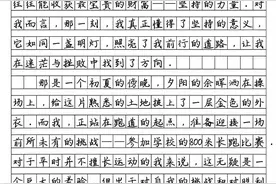 往往能收获最宝贵的财富——坚持的力量，对
我而言，那一刻，我真正懂得了坚持的意义，
它如同一盏明灯，照亮了我前行的道路，让我
在迷茫与挫败中找到了方向。
那是一个初夏的傍晚，夕阳的余晖洒在操
场上，给这片熟悉的土地披上了一层金色的外
衣。而我，正站在跑道的起点，准备迎接一场
前所未有的挑战——参加学校的800米长跑比赛。
对于平时并不擅长运动的我来说，这无疑是一
个巨大的考验，但出于对自我的挑战和对胜利